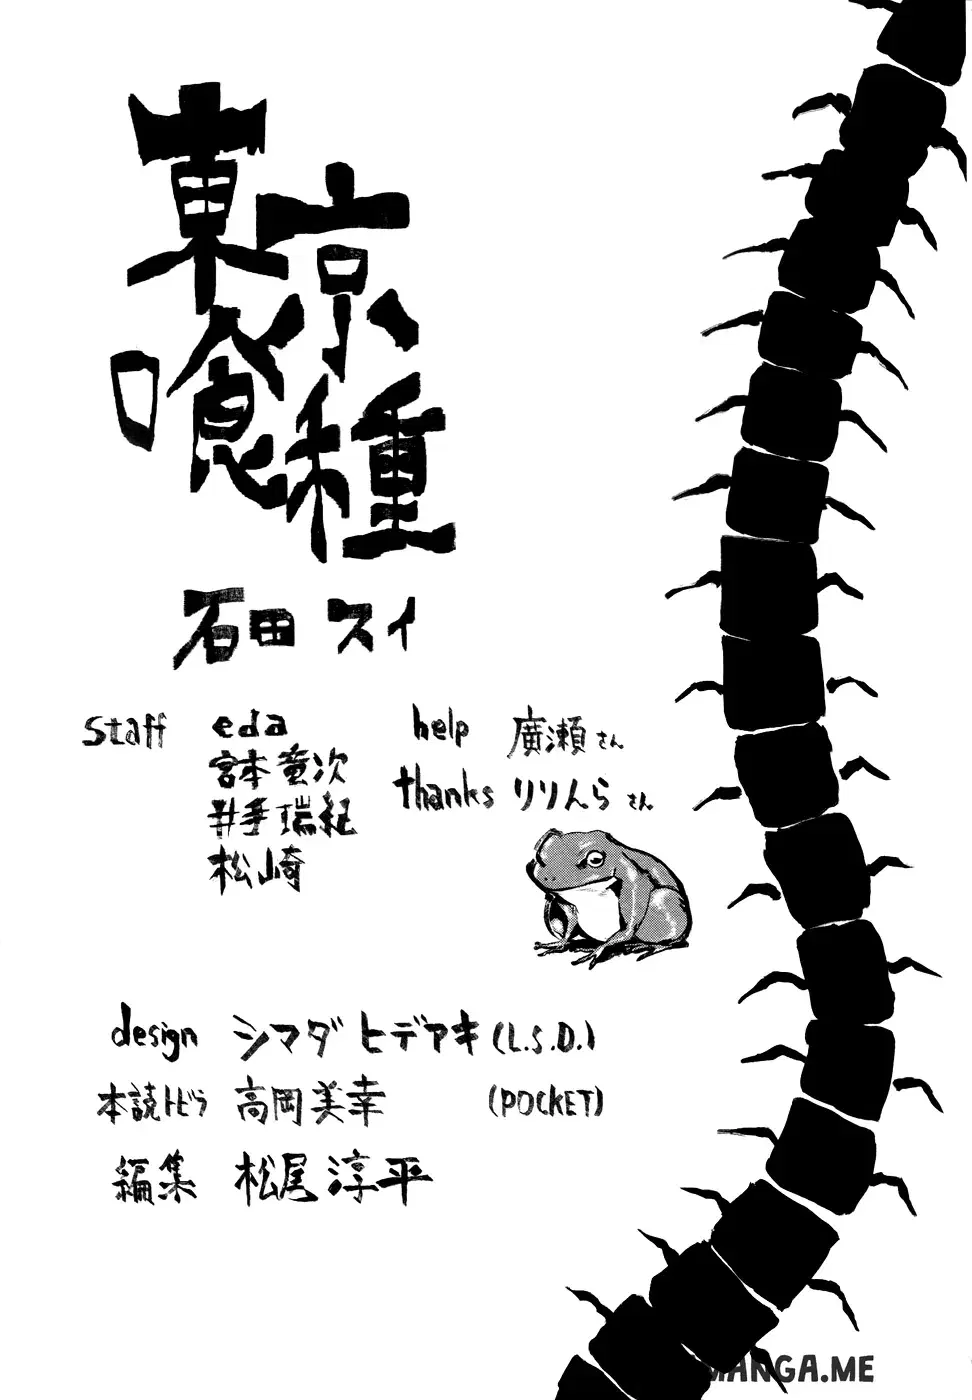 東京
喰種
石田 スイ
staff eda
宮本竜次
井手瑞紀
松崎
help 廣瀬さん
thanks りりんらさん
design シマダ ヒデアキ (L.S.D.)
本読トビラ 高岡美幸 (POCKET)
編集 松尾淳平
MANGA.ME